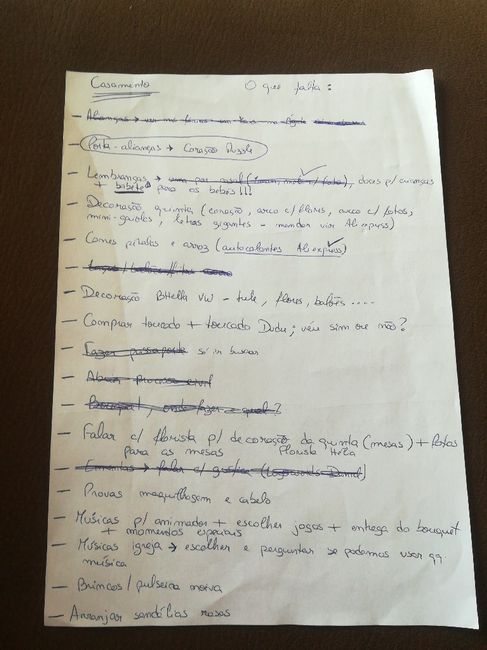 Casamento O que falta:
- Alianças →
- Porta-alianças → Coração Puzzle
- Lembranças → um par casal (íman, c/ foto), doces p/ crianças
+ babetes para os bebés!!!
- Decoração quinta (coração, arco c/ flores, arco c/ fotos,
mini-gaiolas, letras gigantes - mandar vir Aliexpress)
- Cones pétalas e arroz (autocolantes Aliexpress)
- Laços/
- Decoração VW - tule, flores, balões ....
- Comprar toucado + toucado Dudu; véu sim ou não?
- Fazer passaporte só ir buscar
- Abrir Processo civil
- onde fazer e qual?
- Falar c/ florista p/ decoração da quinta (mesas) + fotos
para as mesas Florista Hélia
- Ementas → falar c/ gráfica
- Provas maquilhagem e cabelo
- Músicas p/ animador + escolher jogos + entrega do bouquet
+ momentos especiais
- Músicas igreja → escolher e perguntar se podemos usar qq
música
- Brincos/pulseira noiva
- Arranjar sandálias rosas